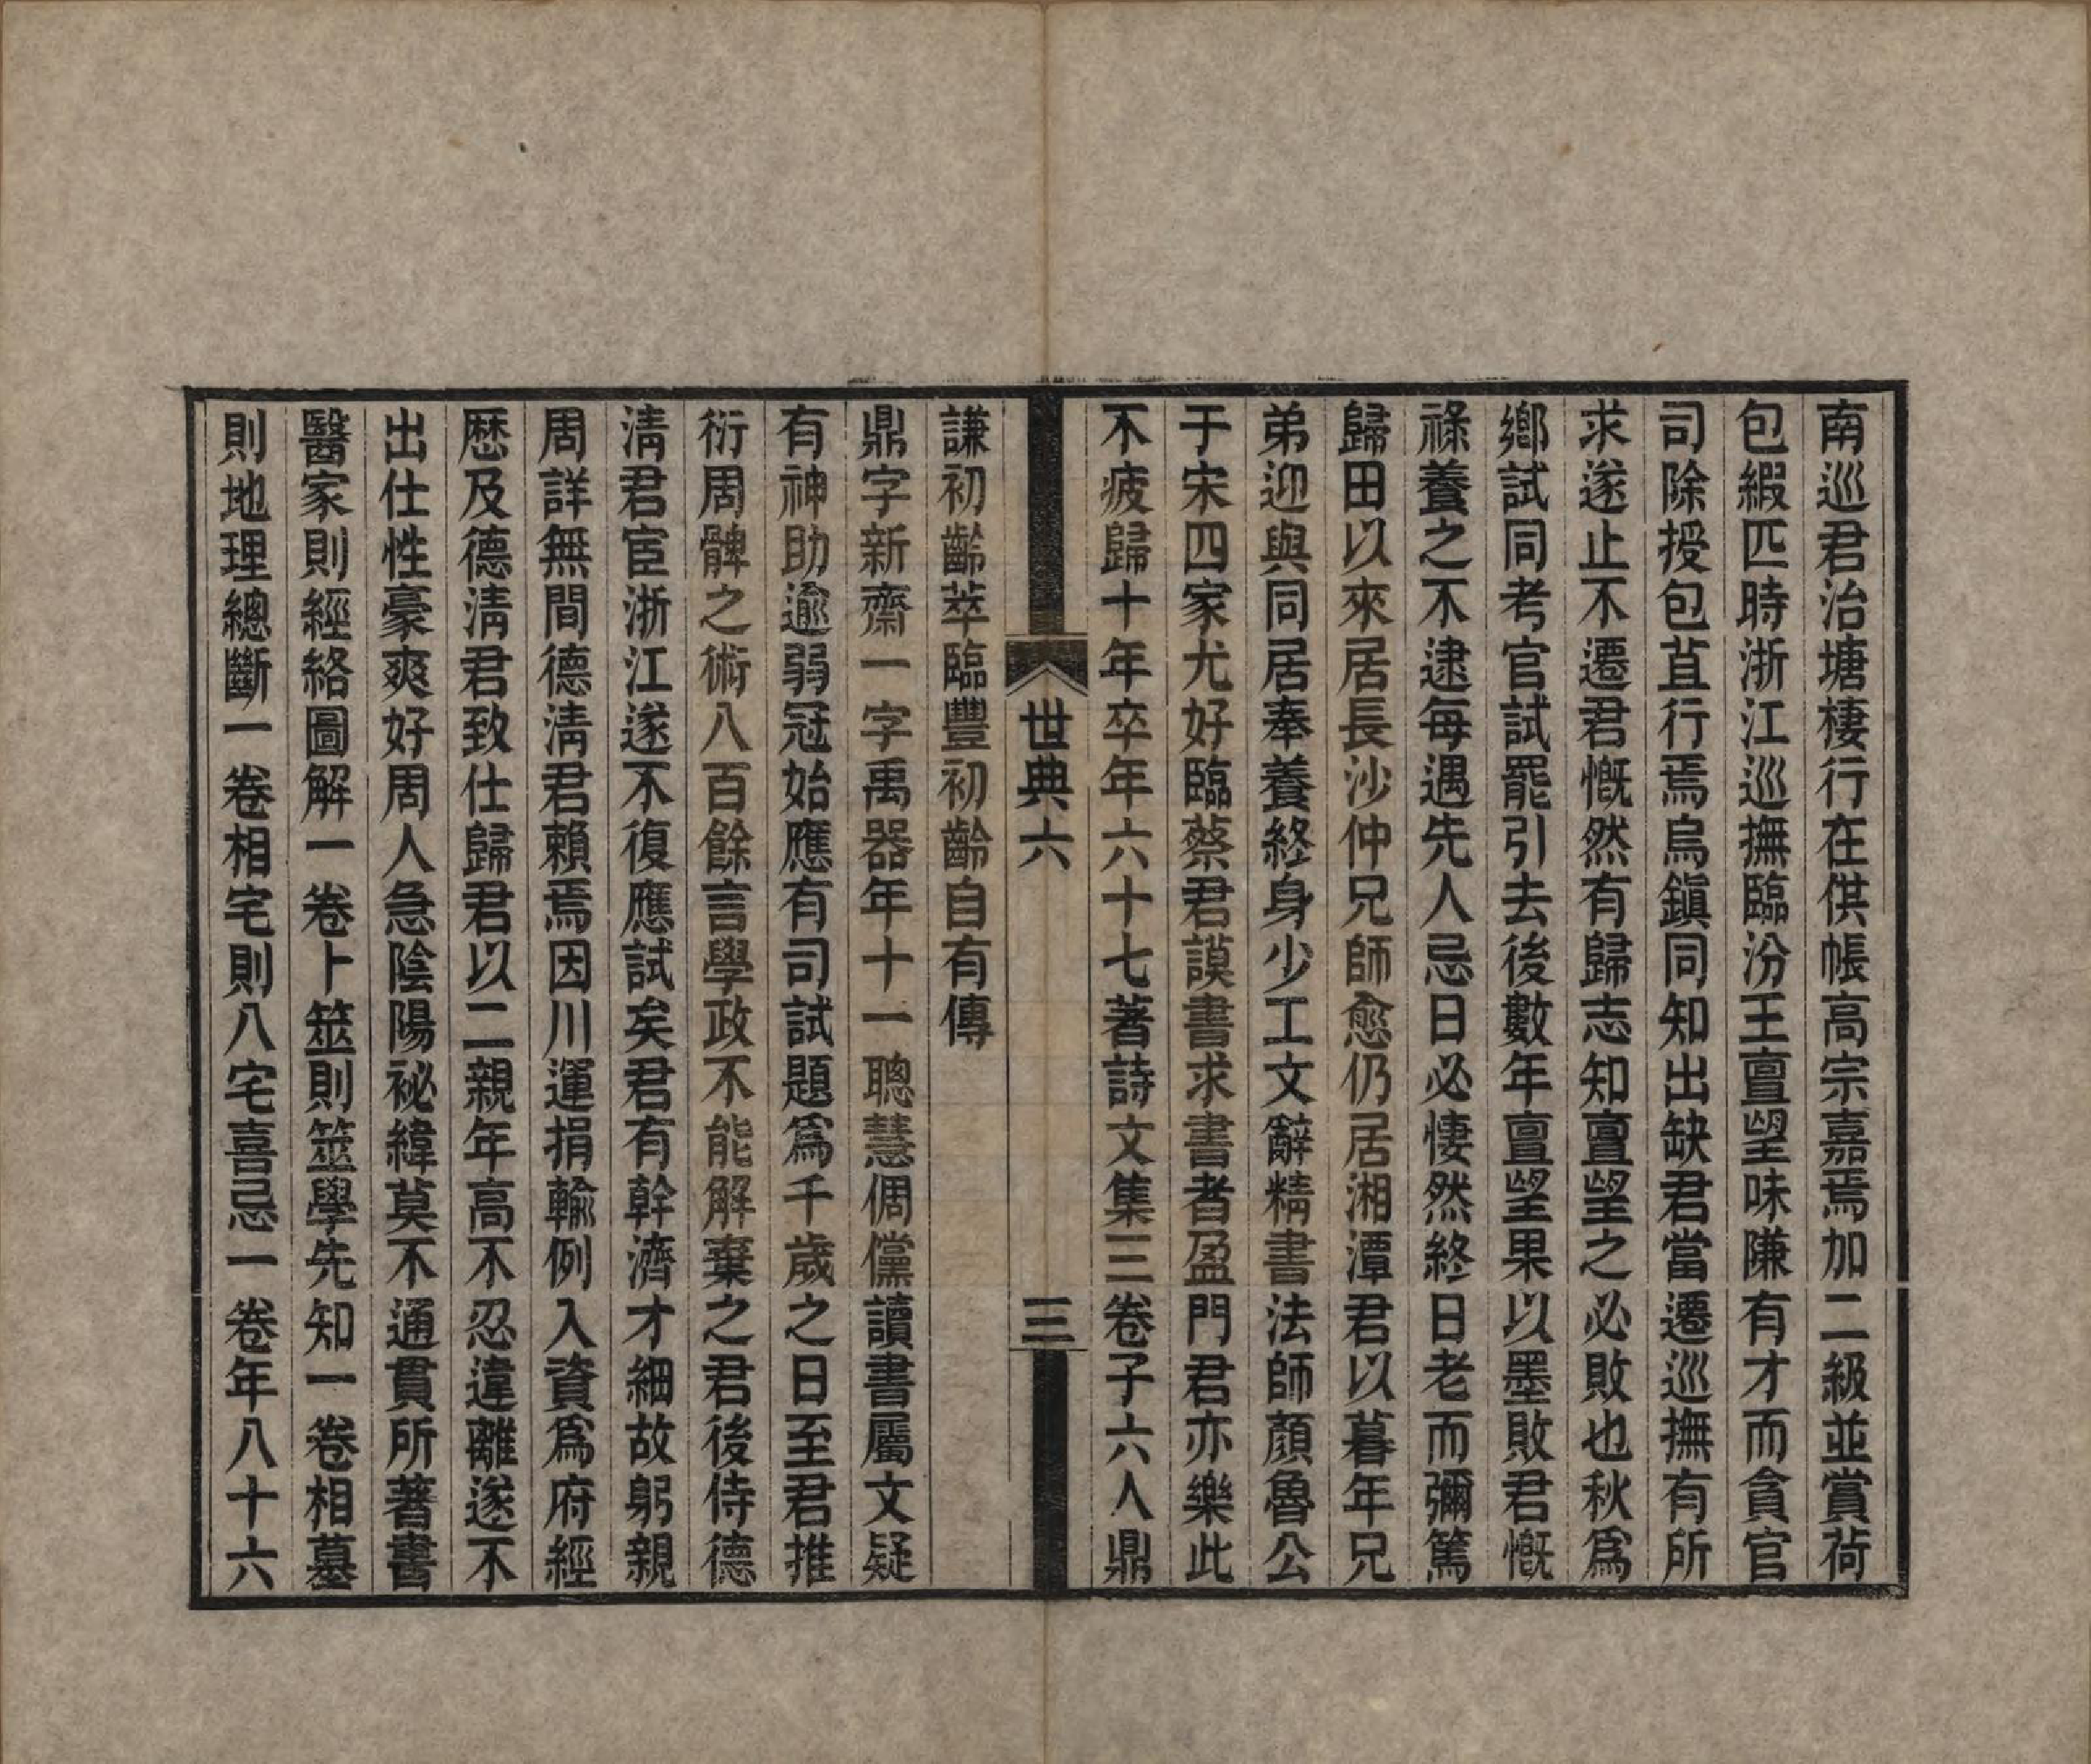 南巡君治塘棲行在供帳高宗嘉焉加二級並賞荷
包緞匹時浙江巡撫臨汾王亶望味隒有才而貪官
司除授包苴行焉烏鎮同知出缺君當遷巡撫有所
求遂止不遷君慨然有歸志知亶望之必敗也秋爲
鄉試同考官試罷引去後數年亶望果以墨敗君慨
祿養之不逮每遇先人忌日必悽然終日老而彌篤
歸田以來居長沙仲兄師愈仍居湘潭君以暮年兄
弟迎與同居奉養終身少工文辭精書法師顏魯公
于宋四家尤好臨蔡君謨書求書者盈門君亦樂此
不疲歸十年卒年六十七著詩文集三卷子六人鼎
世典六
三
謙初齡萃臨豐初齡自有傳
鼎字新齋一字禹器年十一聰慧倜儻讀書屬文疑
有神助逾弱冠始應有司試題爲千歲之日至君推
衍周髀之術八百餘言學政不能解棄之君後侍德
淸君宦浙江遂不復應試矣君有幹濟才細故躬親
周詳無間德淸君賴焉因川運捐輸例入資爲府經
歷及德淸君致仕歸君以二親年高不忍違離遂不
出仕性豪爽好周人急陰陽祕緯莫不通貫所著書
醫家則經絡圖解一卷卜筮則筮學先知一卷相墓
則地理總斷一卷相宅則八宅喜忌一卷年八十六